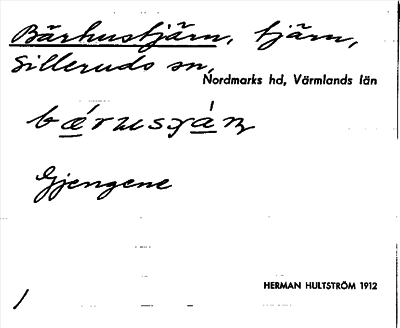 Bärhustjärn, tjärn,
Silleruds sn,
Nordmarks hd, Värmlands län
Gjengene
HERMAN HULTSTRÖM 1912